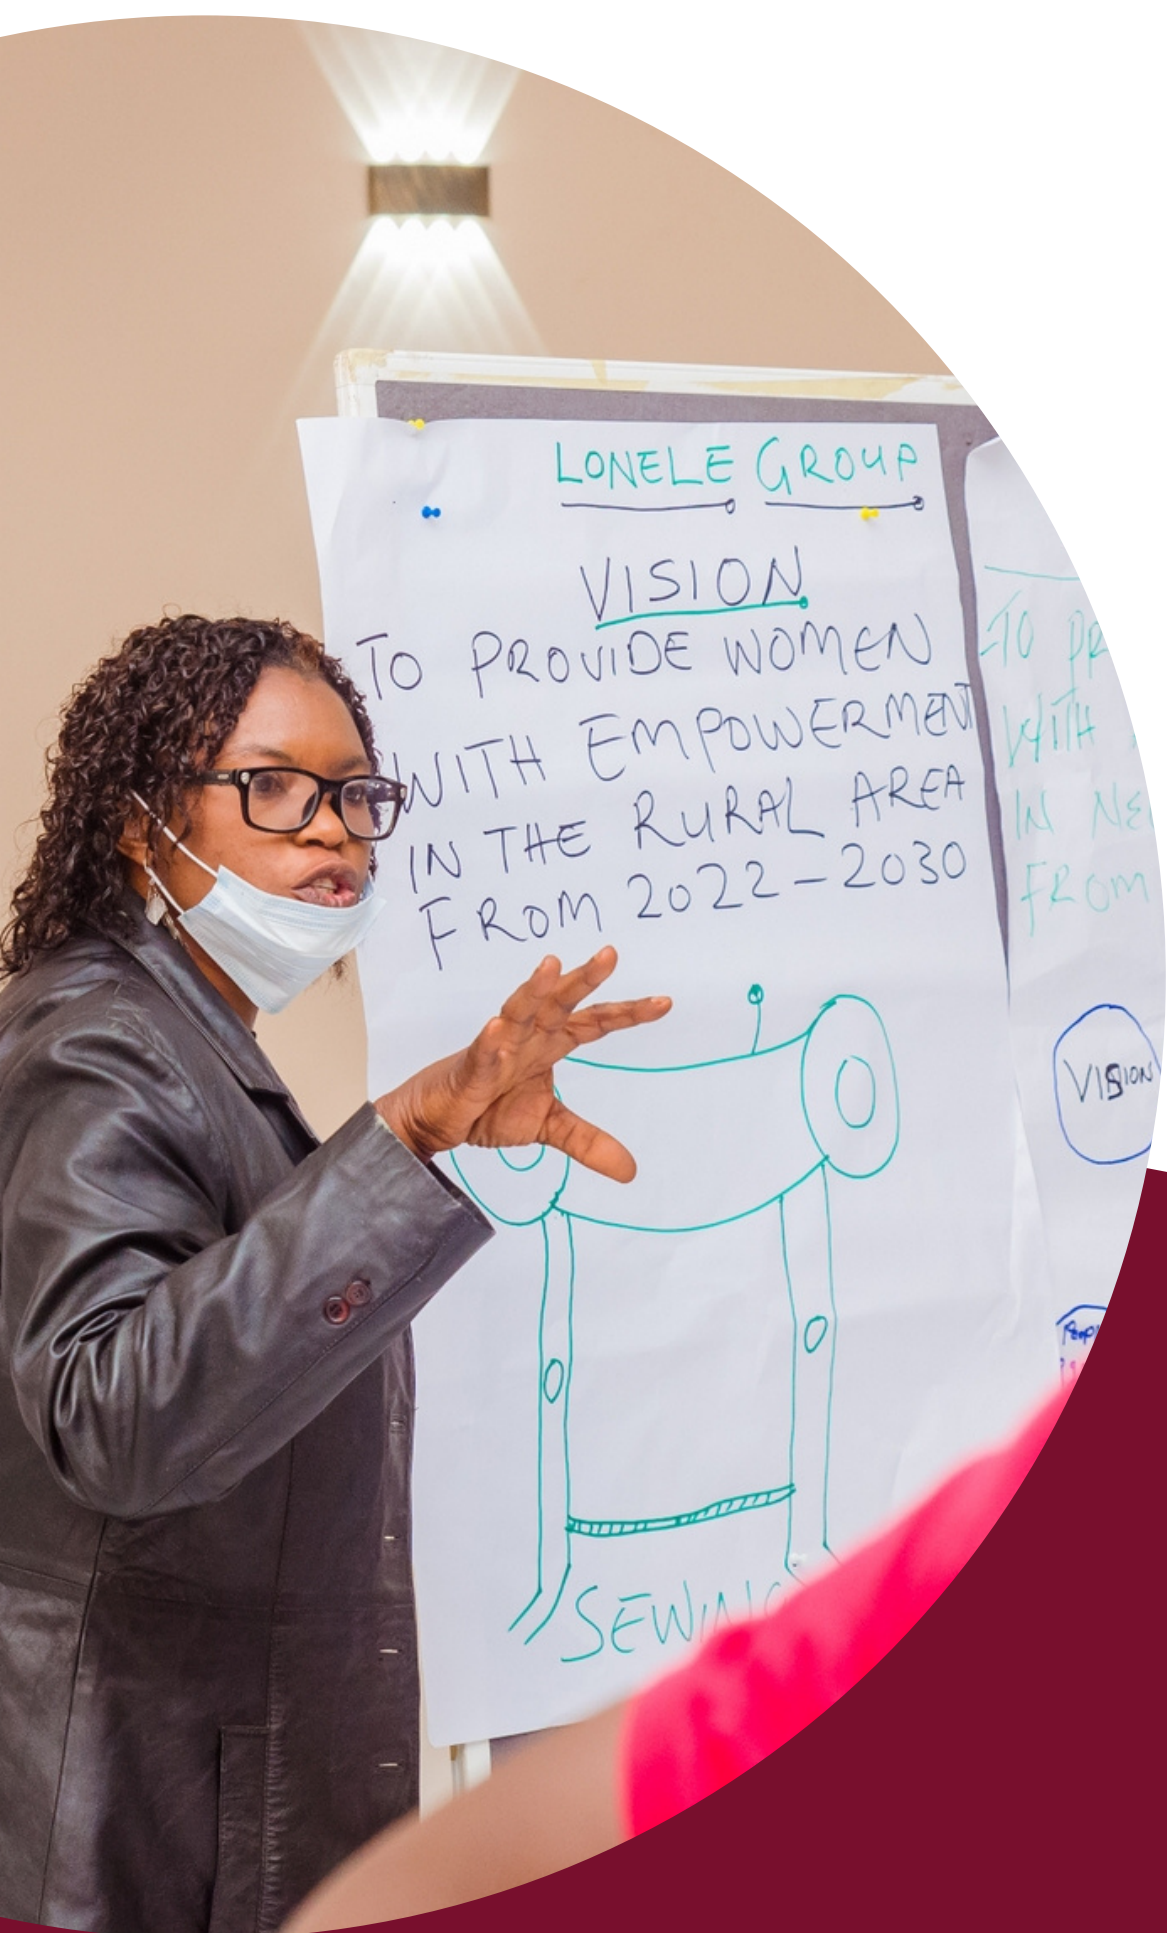 LONELE GROUP
VISION
TO PROVIDE WOMEN
WITH EMPOWERMENT
IN THE RURAL AREA
FROM 2022-2030
SEWING
TO
WITH
IN
FROM
VISION